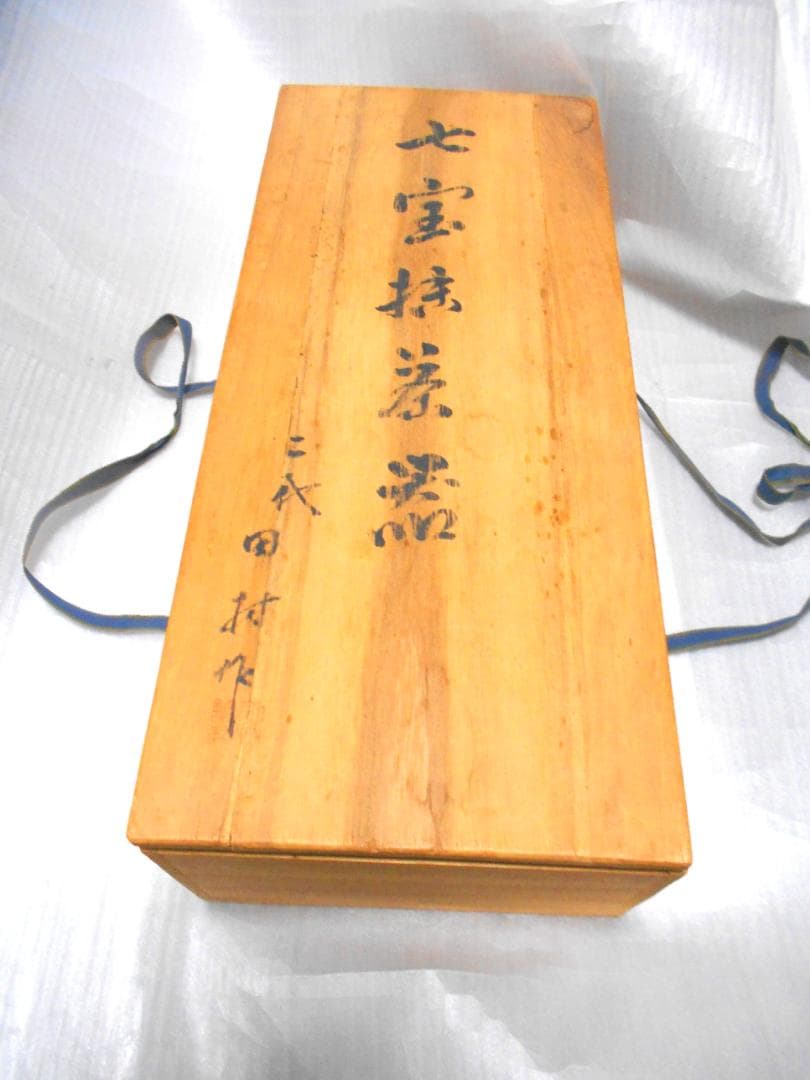 七宝抹茶器
二代田村作